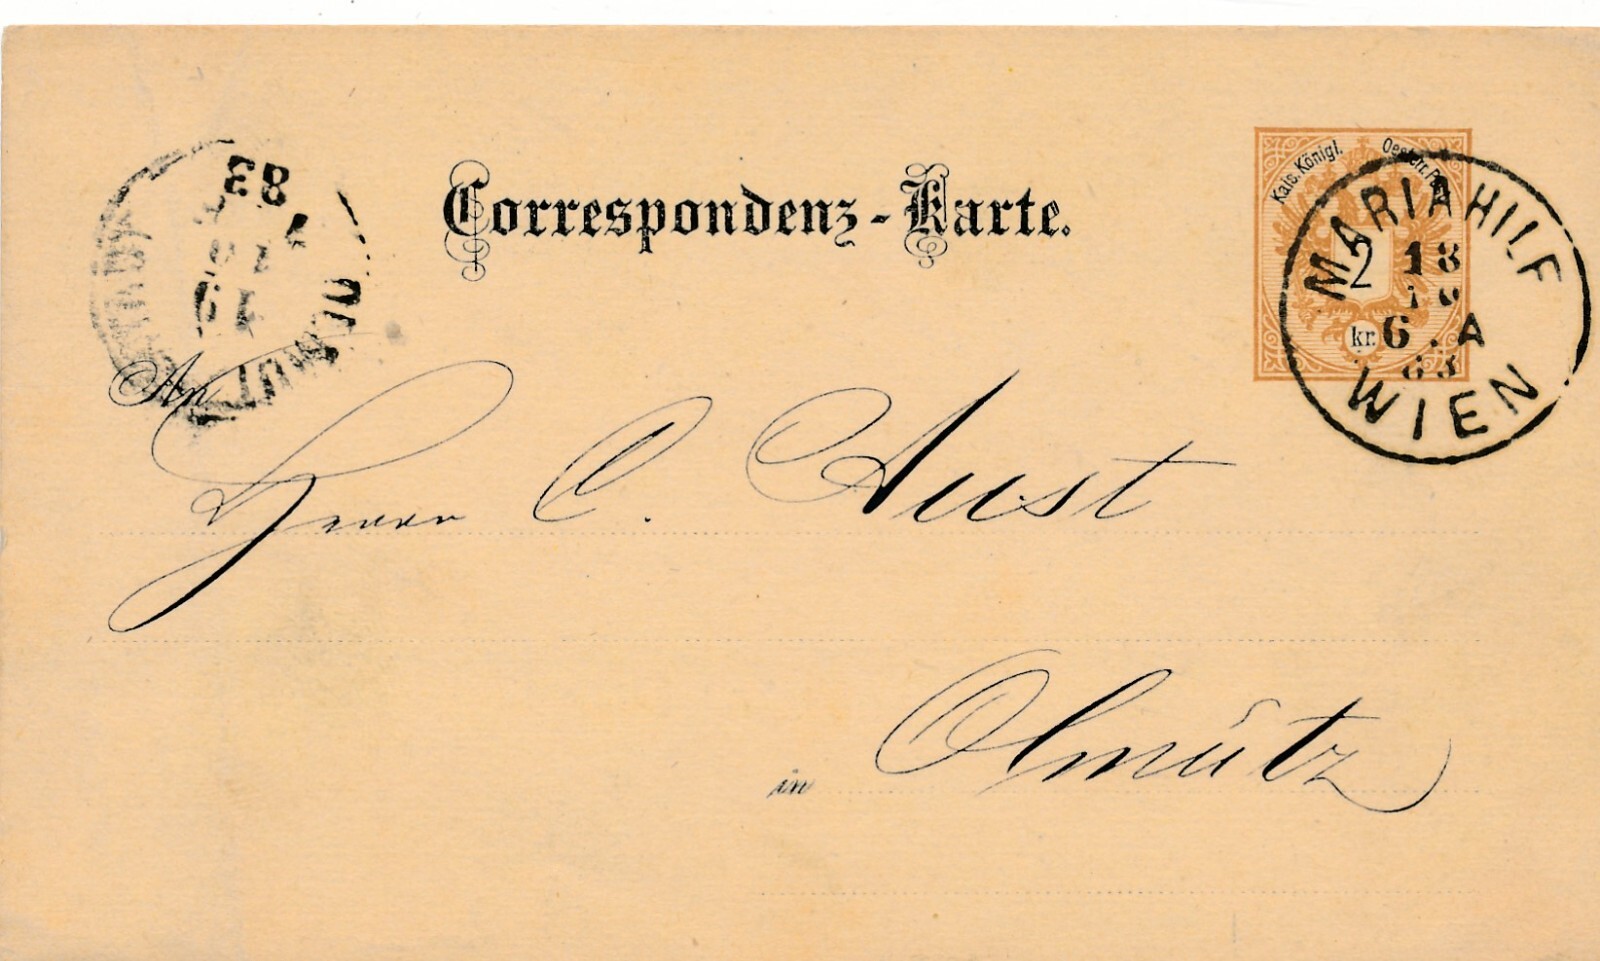 Correspondenz-Karte.
Kais. Königl. Oesterr.
2
kr.
MARIAHILF
18
10
6. A
83
WIEN
83
OLMÜTZ
An
Herrn C. Aust
in Olmütz